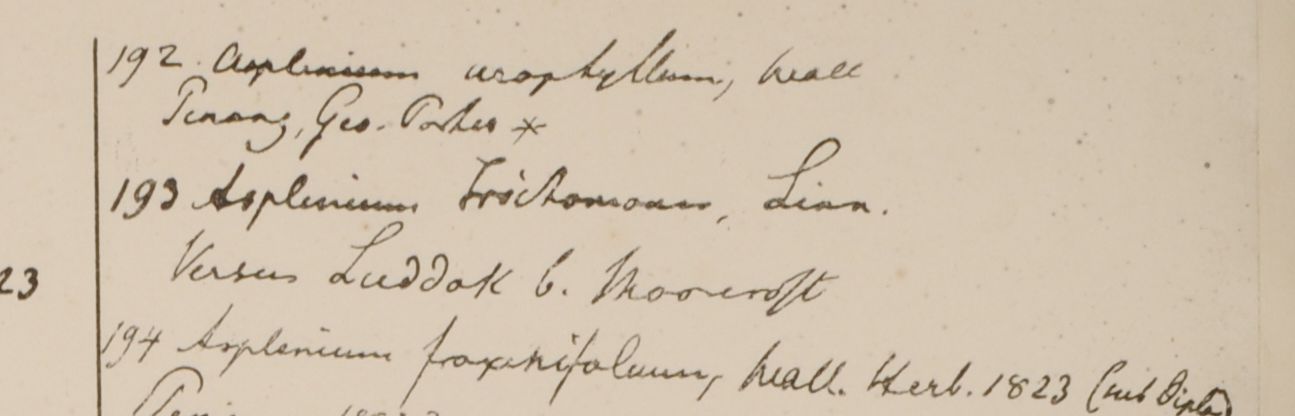 192. Asplenium urophyllum, Wall
Penang, Geo. Porter *
193 Asplenium Trichomanes, Linn.
23
Versus Luddak G. Moorcroft
194 Asplenium fraxinifolium, Wall. Herb. 1823 (sub Diplaz